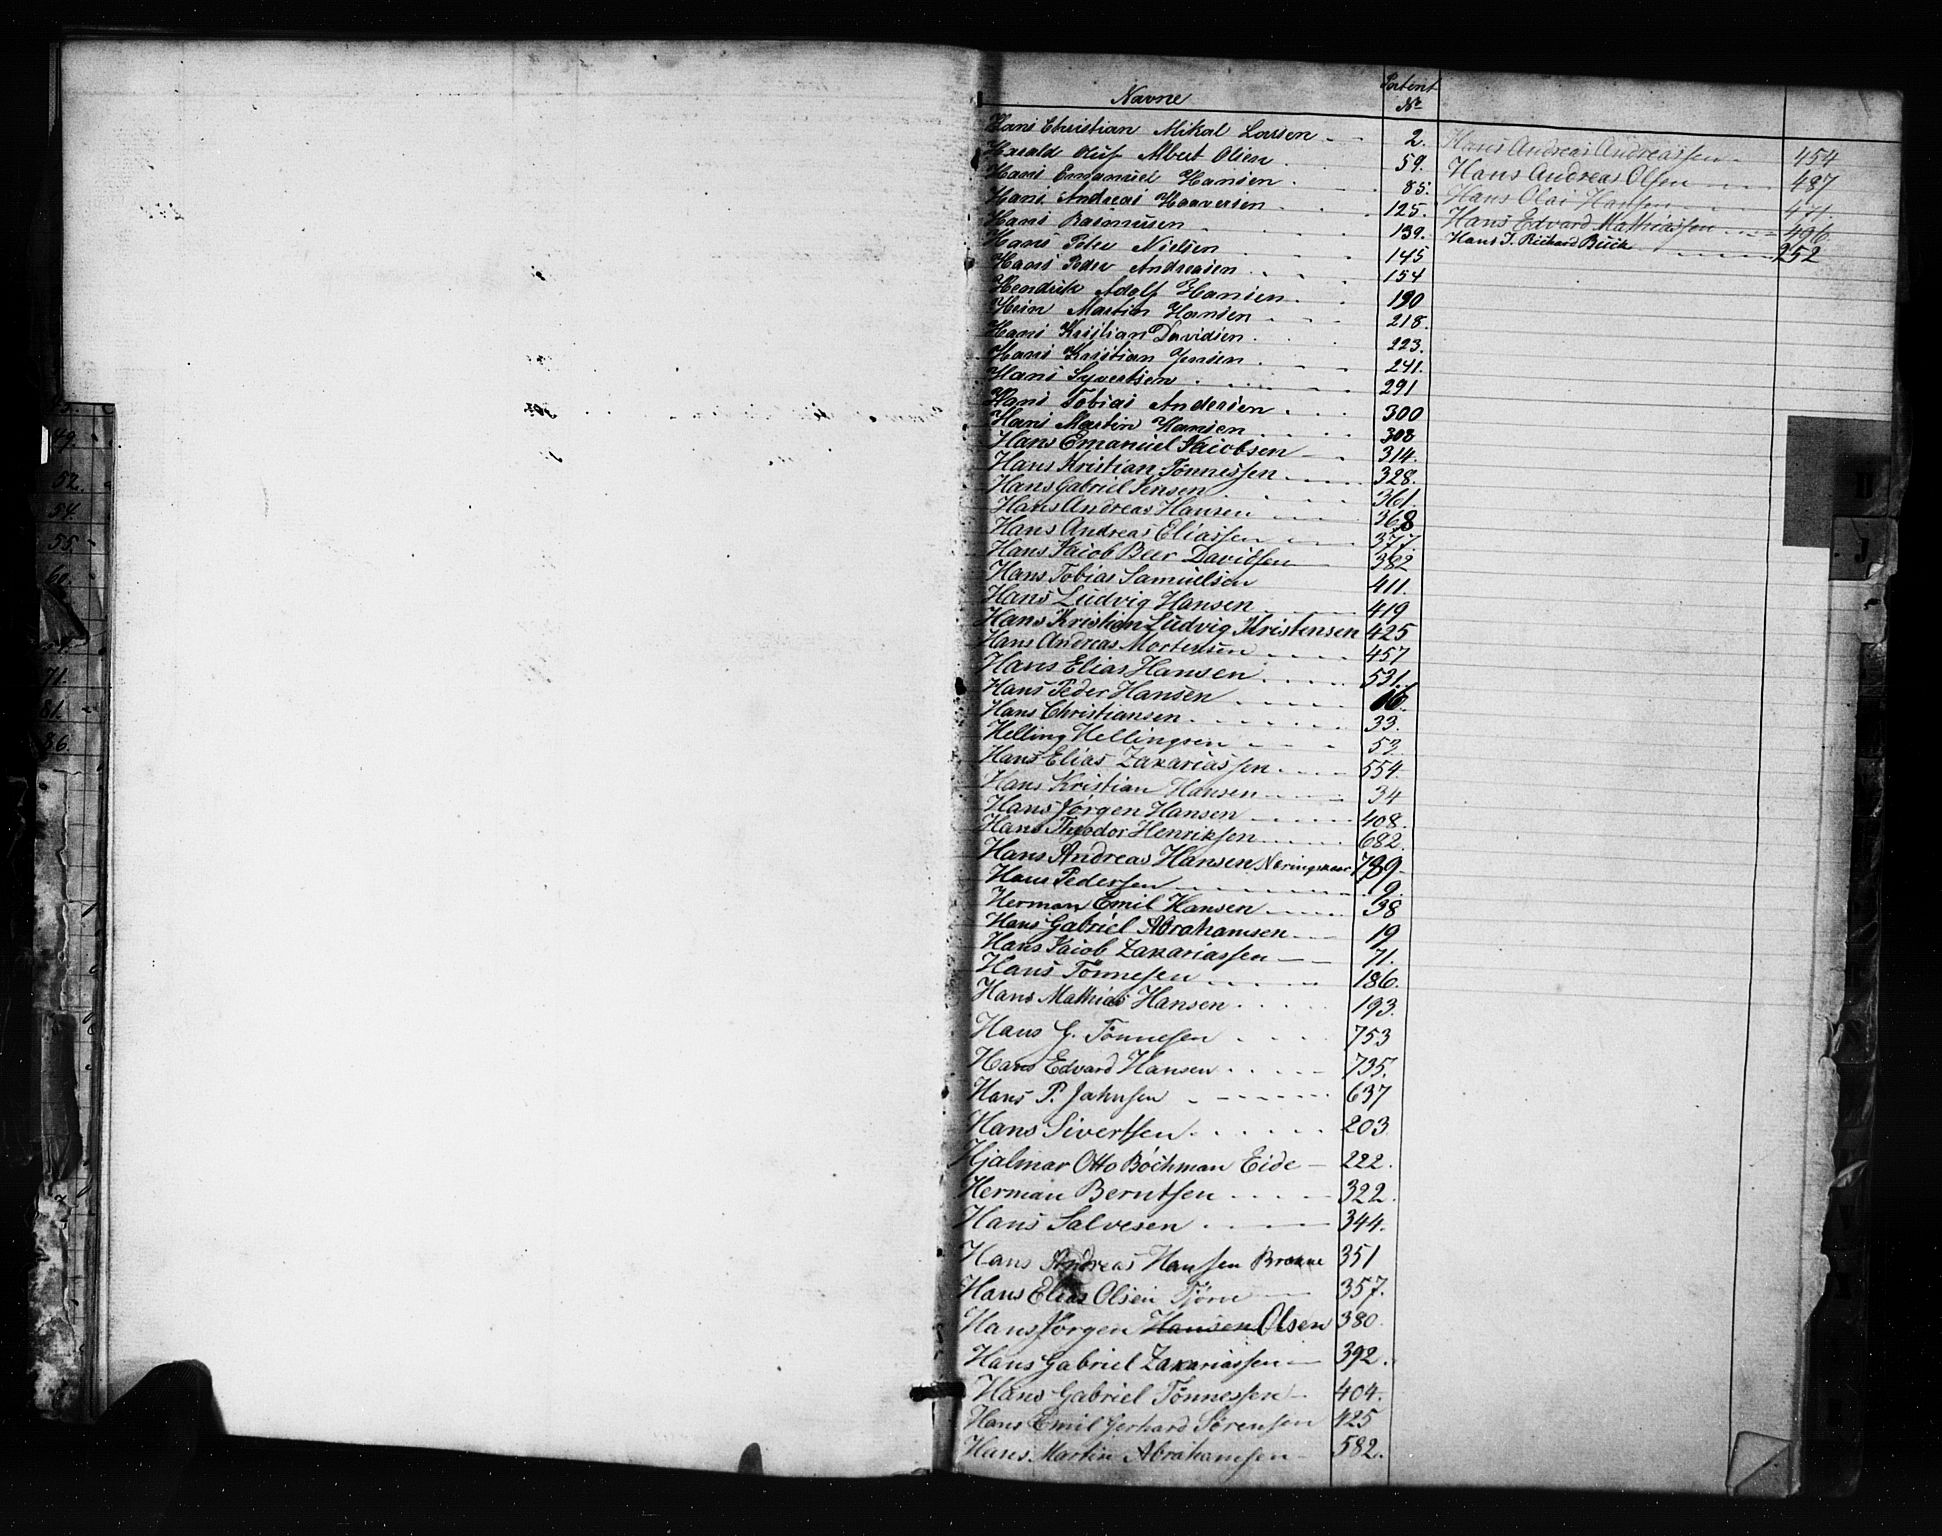 Navne Patent No
Hans Christian Mikal Larsen 2.
Harald Oluf Albert Olsen 59.
Hans Emanuel Hansen 85.
Hans Andreas Haaversen 125.
Hans Rasmussen 139.
Hans Peter Nielsen 145
Hans Peder Andreasen 154
Hendrik Adolf Hansen 190
Hein Martin Hansen 218.
Hans Kristian Davidsen 223.
Hans Kristian Jensen 241.
Hans Syvertsen 291
Hans Tobias Andersen 300
Hans Martin Hansen 308
Hans Emanuel Jacobsen 314.
Hans Kristian Tønnessen 328.
Hans Gabriel Jensen 361.
Hans Andreas Hansen 368
Hans Andreas Eliassen 377
Hans Jacob Beer Davidsen 382
Hans Tobias Samuelsen 411.
Hans Ludvig Hansen 419
Hans Kristian Ludvig Kristensen 425
Hans Andreas Mortensen 457
Hans Elias Hansen 531.
Hans Peder Hansen 16.
Hans Christiansen 33.
Helling Hellingsen 53
Hans Elias Zakariassen 554
Hans Kristian Hansen 34
Hans Jørgen Hansen 408.
Hans Theodor Henriksen 682.
Hans Andreas Hansen 789
Hans Pedersen 9.
Herman Emil Hansen 38
Hans Gabriel Abrahamsen 19
Hans Jacob Zakariassen 71.
Hans Tønnesen 186.
Hans Mathias Hansen 193.
Hans G. Tønnesen 753
Hans Edvard Hansen 735.
Hans P. Jahnsen 637
Hans Sivertsen 203
Hjalmar Otto Bøchman Eide 222.
Herman Berntsen 322.
Hans Salvesen 344.
Hans Andreas Hansen Brække 351
Hans Elias Olsen Tjörn 357.
Hans Jørgen Hansen Olsen 380.
Hans Gabriel Zakariassen 392.
Hans Gabriel Tønnessen 404.
Hans Emil Gerhard Sørensen 425
Hans Martin Abrahamsen 582.
Hans Andreas Andreassen 454
Hans Andreas Olsen 487
Hans Olai Hansen 471.
Hans Edvard Mathiassen 496.
Hans J. Richard Buck 252
49.
52.
54.
55.
71.
81.
J